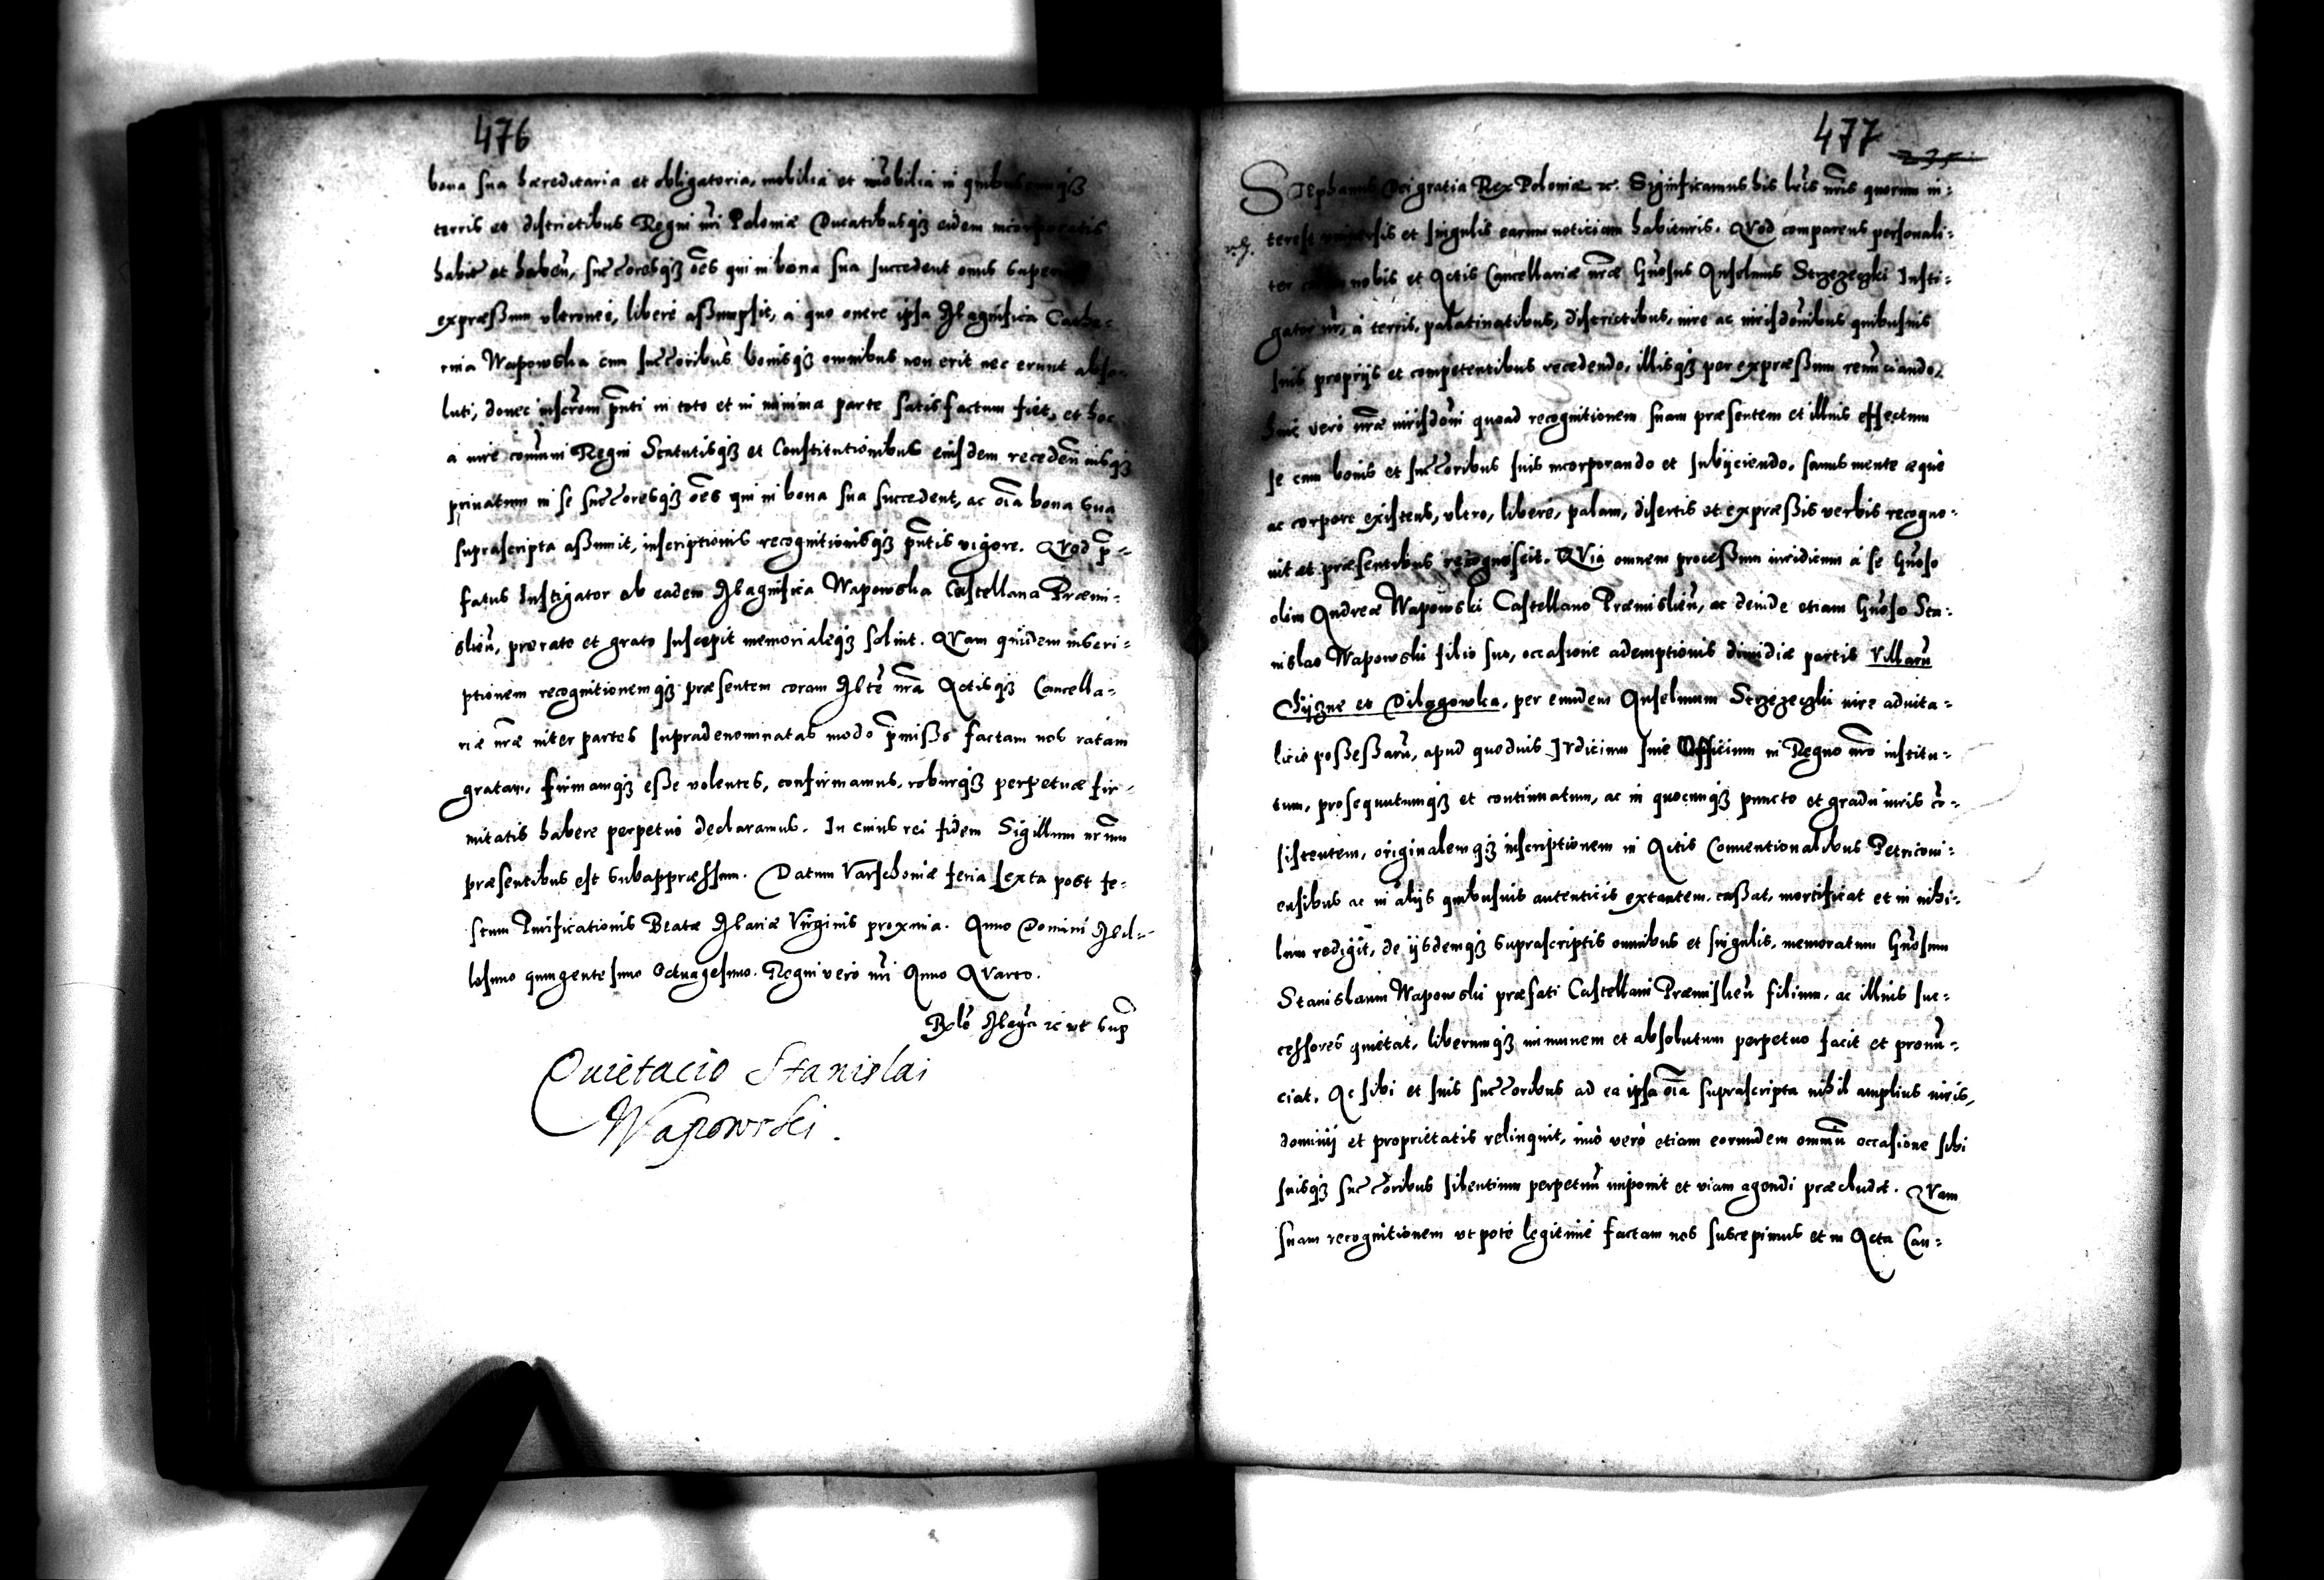 476
bona sua hæreditaria et obligatoria, mobilia et im̄obilia in quibuscunq3
terris et districtibus Regni nri Poloniæ Ducatibusq3 eidem incorporatis
habit et haben̄, succ̄oresq3 oēs qui in bona sua succedent onus
expræßum ultroneè, liberè aßumpsit, à quo onere ipsa Magnifica Cathe-
rina Wapowska cum succ̄oribus bonisq3 omnibus non erit nec erunt abso-
luti, donec inscrōni pn̄ti in toto et in minima parte satisfactum fiet, et hoc
a iure com̄uni Regni Statutisq3 et Constitutionibus eiusdem receden̄
priuatum in se succ̄oresq3 oēs qui in bona sua succedent, ac oīa bona sua
suprascripta aßumit, inscriptionis recognitionisq3 pn̄tis vigore. QVod p̄-
fatus Instigator ab eadem Magnifica Wapowska Castellana Præmi-
slien̄, pro rato et grato suscepit memorialeq3 soluit. QVam quidem inscri-
ptionem recognitionemq3 præsentem coram Mte nrā Actisq3 Cancella-
riæ nræ inter partes supradenominatas modo p̄mißo factam nos ratam
gratam, firmamq3 eße volentes, confirmamus, roburq3 perpetuæ fir-
mitatis habere perpetuò declaramus. In cuius rei fidem Sigillum nrūm
præsentibus est subappræssum. Datum Varschoniæ feria sexta post fe-
stum Purificationis Beatæ Mariæ Virginis proxima. Anno Domini Mil-
lesimo quingentesimo Octuagesimo. Regni verò nri Anno QVarto.
ut sup̄
Quietacio Stanislai
Wapowski.
477
235.
STEphanus Dei gratia Rex Poloniæ &c. Significamus his lris nris quorum in-
terest vniuersis et singulis earum noticiam habituris. QVod comparens personali-
ter coram nobis et Actis Cancellariæ nræ Gn̄osus Anselmus Strzezeczki Insti-
gator nr, à terris, palatinatibus, districtibus, iure ac iurisdōnibus quibusuis
suis proprijs et competentibus recedendo, illisq3 per expræßum renūciando,
huic verò nræ iurisdōni quoad recognitionem suam præsentem et illius effectum
se cum bonis et succ̄oribus suis incorporando et subijciendo, sanus mente æquè
ac corpore existens, vltro, liberè, palam, disertis et expræßis verbis recogno-
uit et præsentibus recognoscit. QVia omnem proceßum iuridicum à se Gn̄oso
olim Andreæ Wapowski Castellano Præmislien̄, ac deinde etiam Gn̄oso Sta-
nislao Wapowski filio suo, occasione ademptionis dimidiæ partis Villarū
Chijzne et Dilągowka, per eundem Anselmum Strzezeczki iure aduita-
licio poßeßarū, apud quoduis IVdicium siue Officium in Regno nro institu-
tum, prosequutumq3 et continuatum, ac in quocunq3 puncto et gradu iuris cō-
sistentem, originalemq3 inscriptionem in Actis Conuentionalibus Petriconi-
ensibus ac in alijs quibusuis autenticis extantem, caßat, mortificat et in nihi-
lum redigit, de ijsdemq3 suprascriptis omnibus et singulis, memoratum Gn̄osum
Stanislaum Wapowski præfati Castellani Præmislien̄ filium, ac illius suc-
cessores quietat, liberumq3 immunem et absolutum perpetuo facit et pronū-
ciat. Ac sibi et suis succ̄oribus ad ea ipsa oīa suprascripta nihil amplius iuris,
dominij et proprietatis relinquit, imò verò etiam eorundem omniū occasione sibi
suisq3 succ̄oribus silentium perpetuū imponit et viam agendi præcludit. QVam
suam recognitionem vt potè legitimè factam nos suscepimus et in Acta Can-